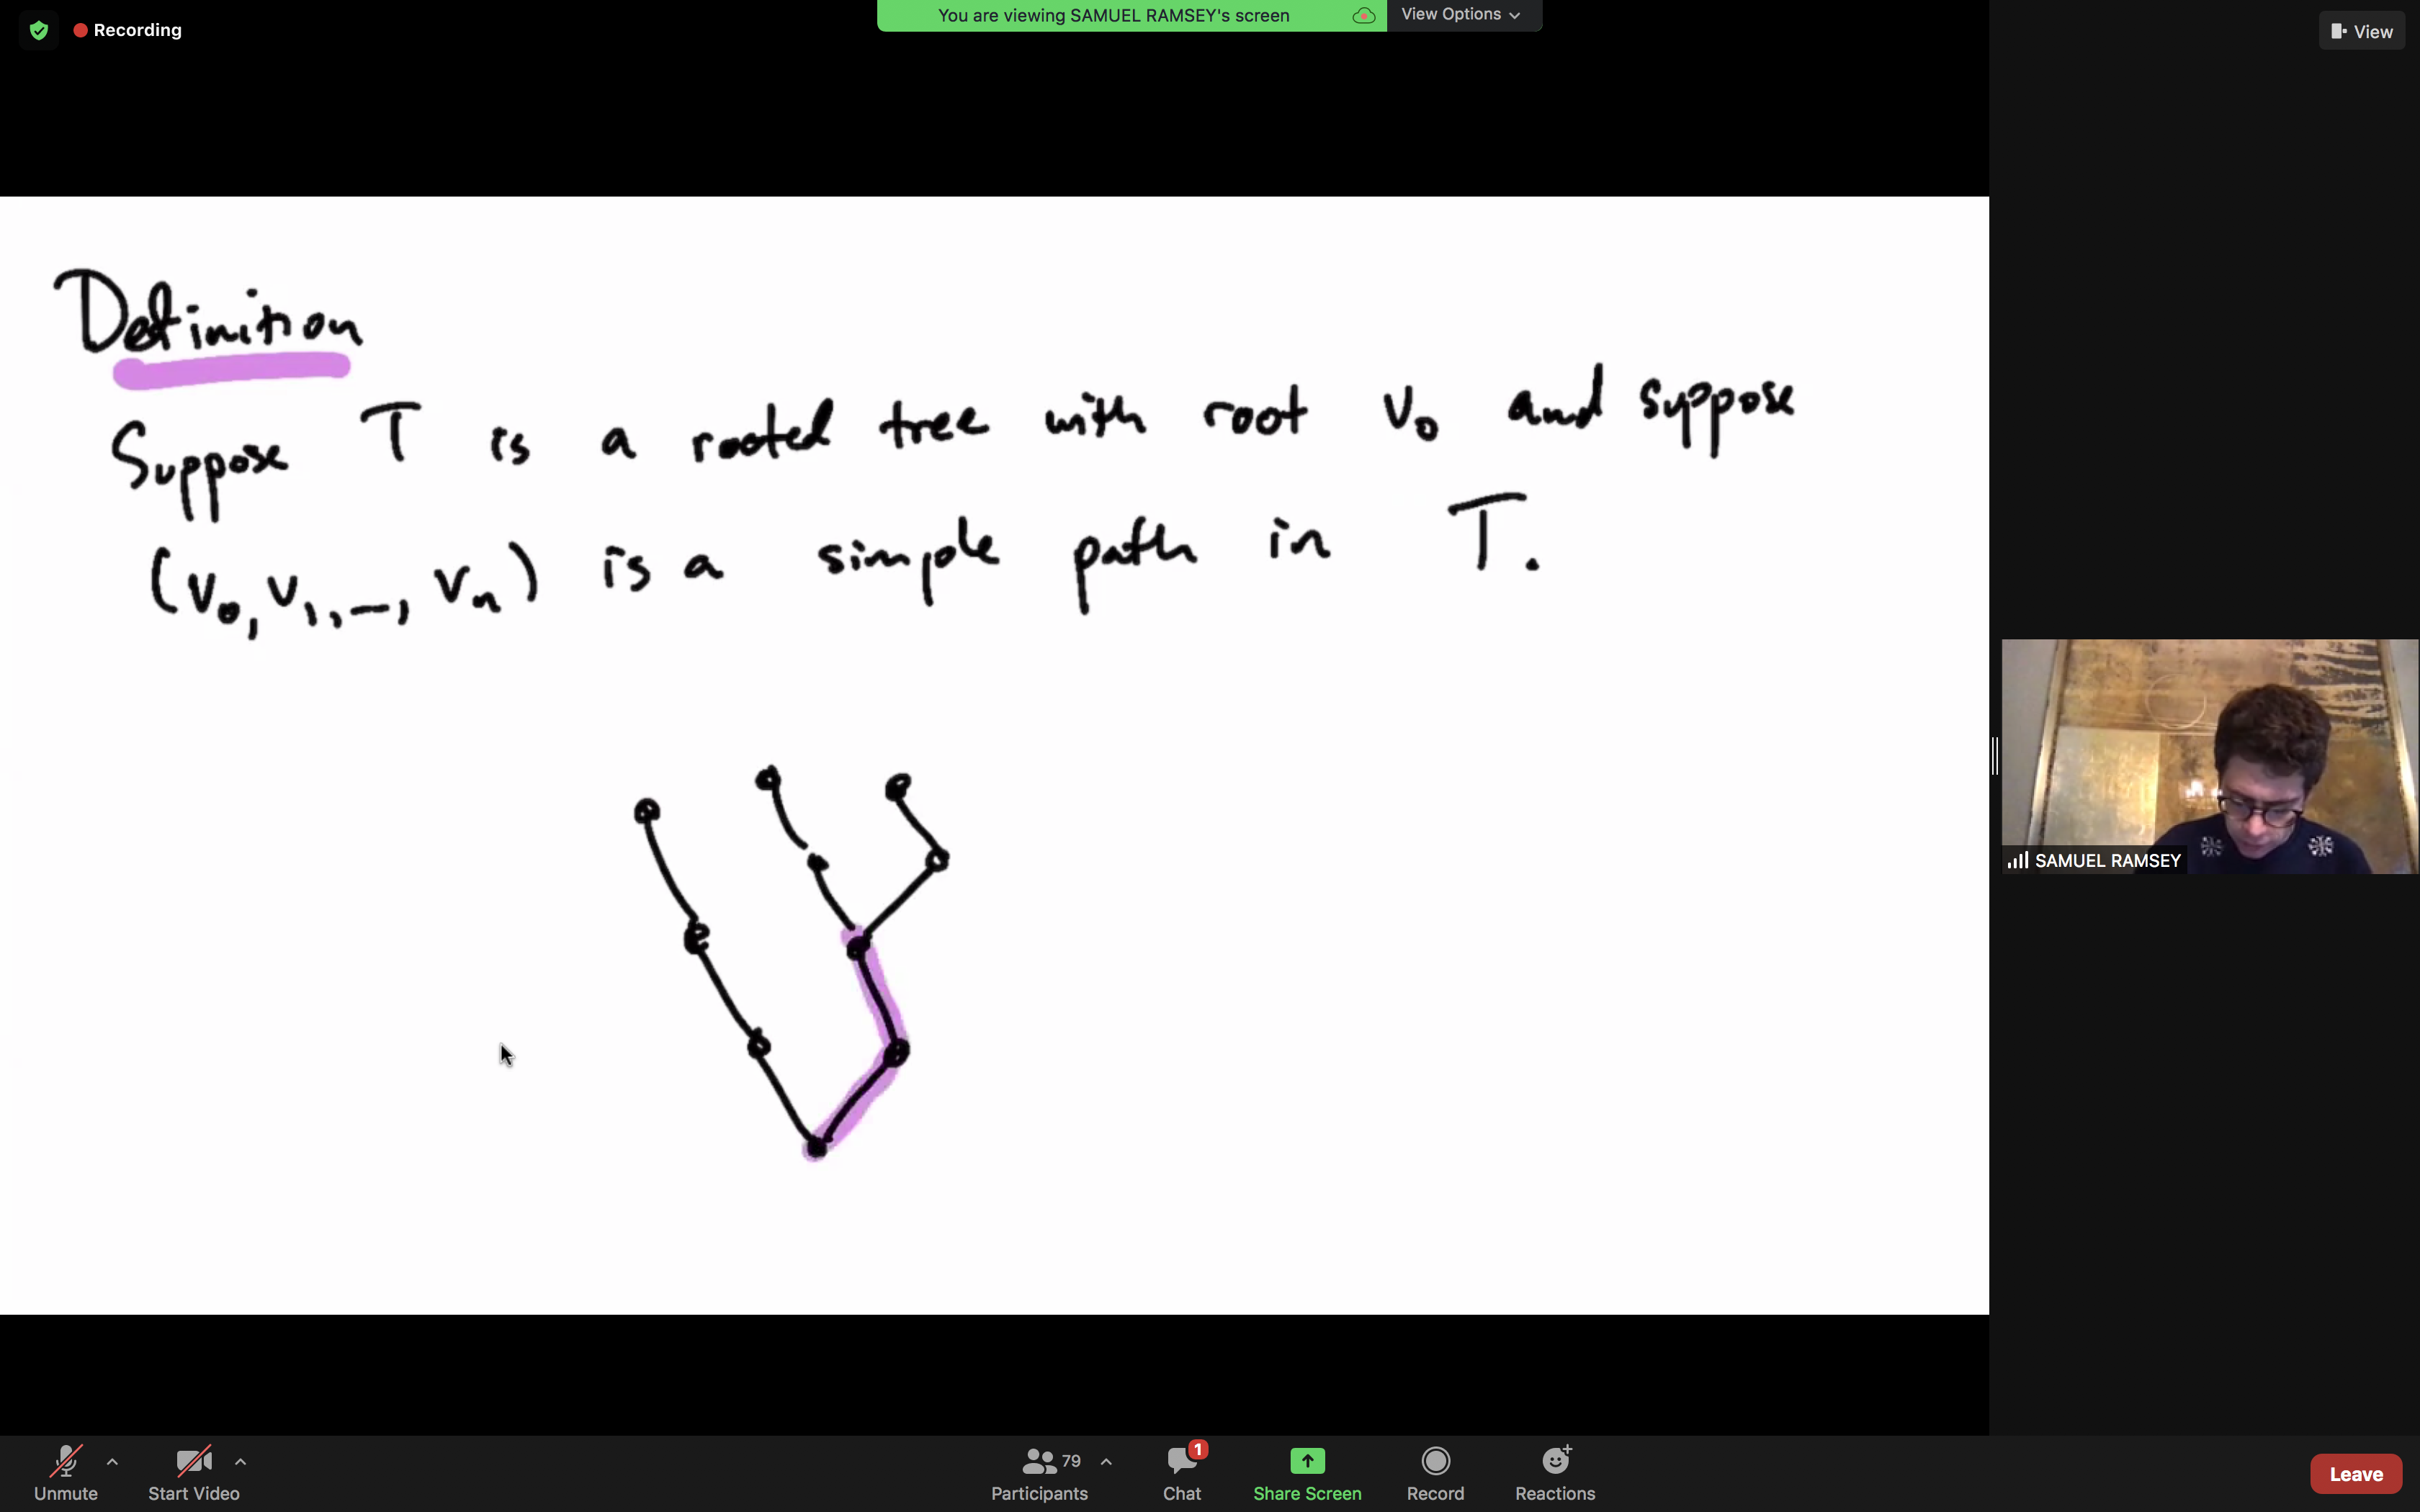 Recording
You are viewing SAMUEL RAMSEY's screen
View Options
View
Definition
Suppose T is a rooted tree with root v₀ and suppose
(v₀, v₁, –, vₙ) is a simple path in T.
SAMUEL RAMSEY
Unmute
Start Video
79
Participants
1
Chat
Share Screen
Record
Reactions
Leave